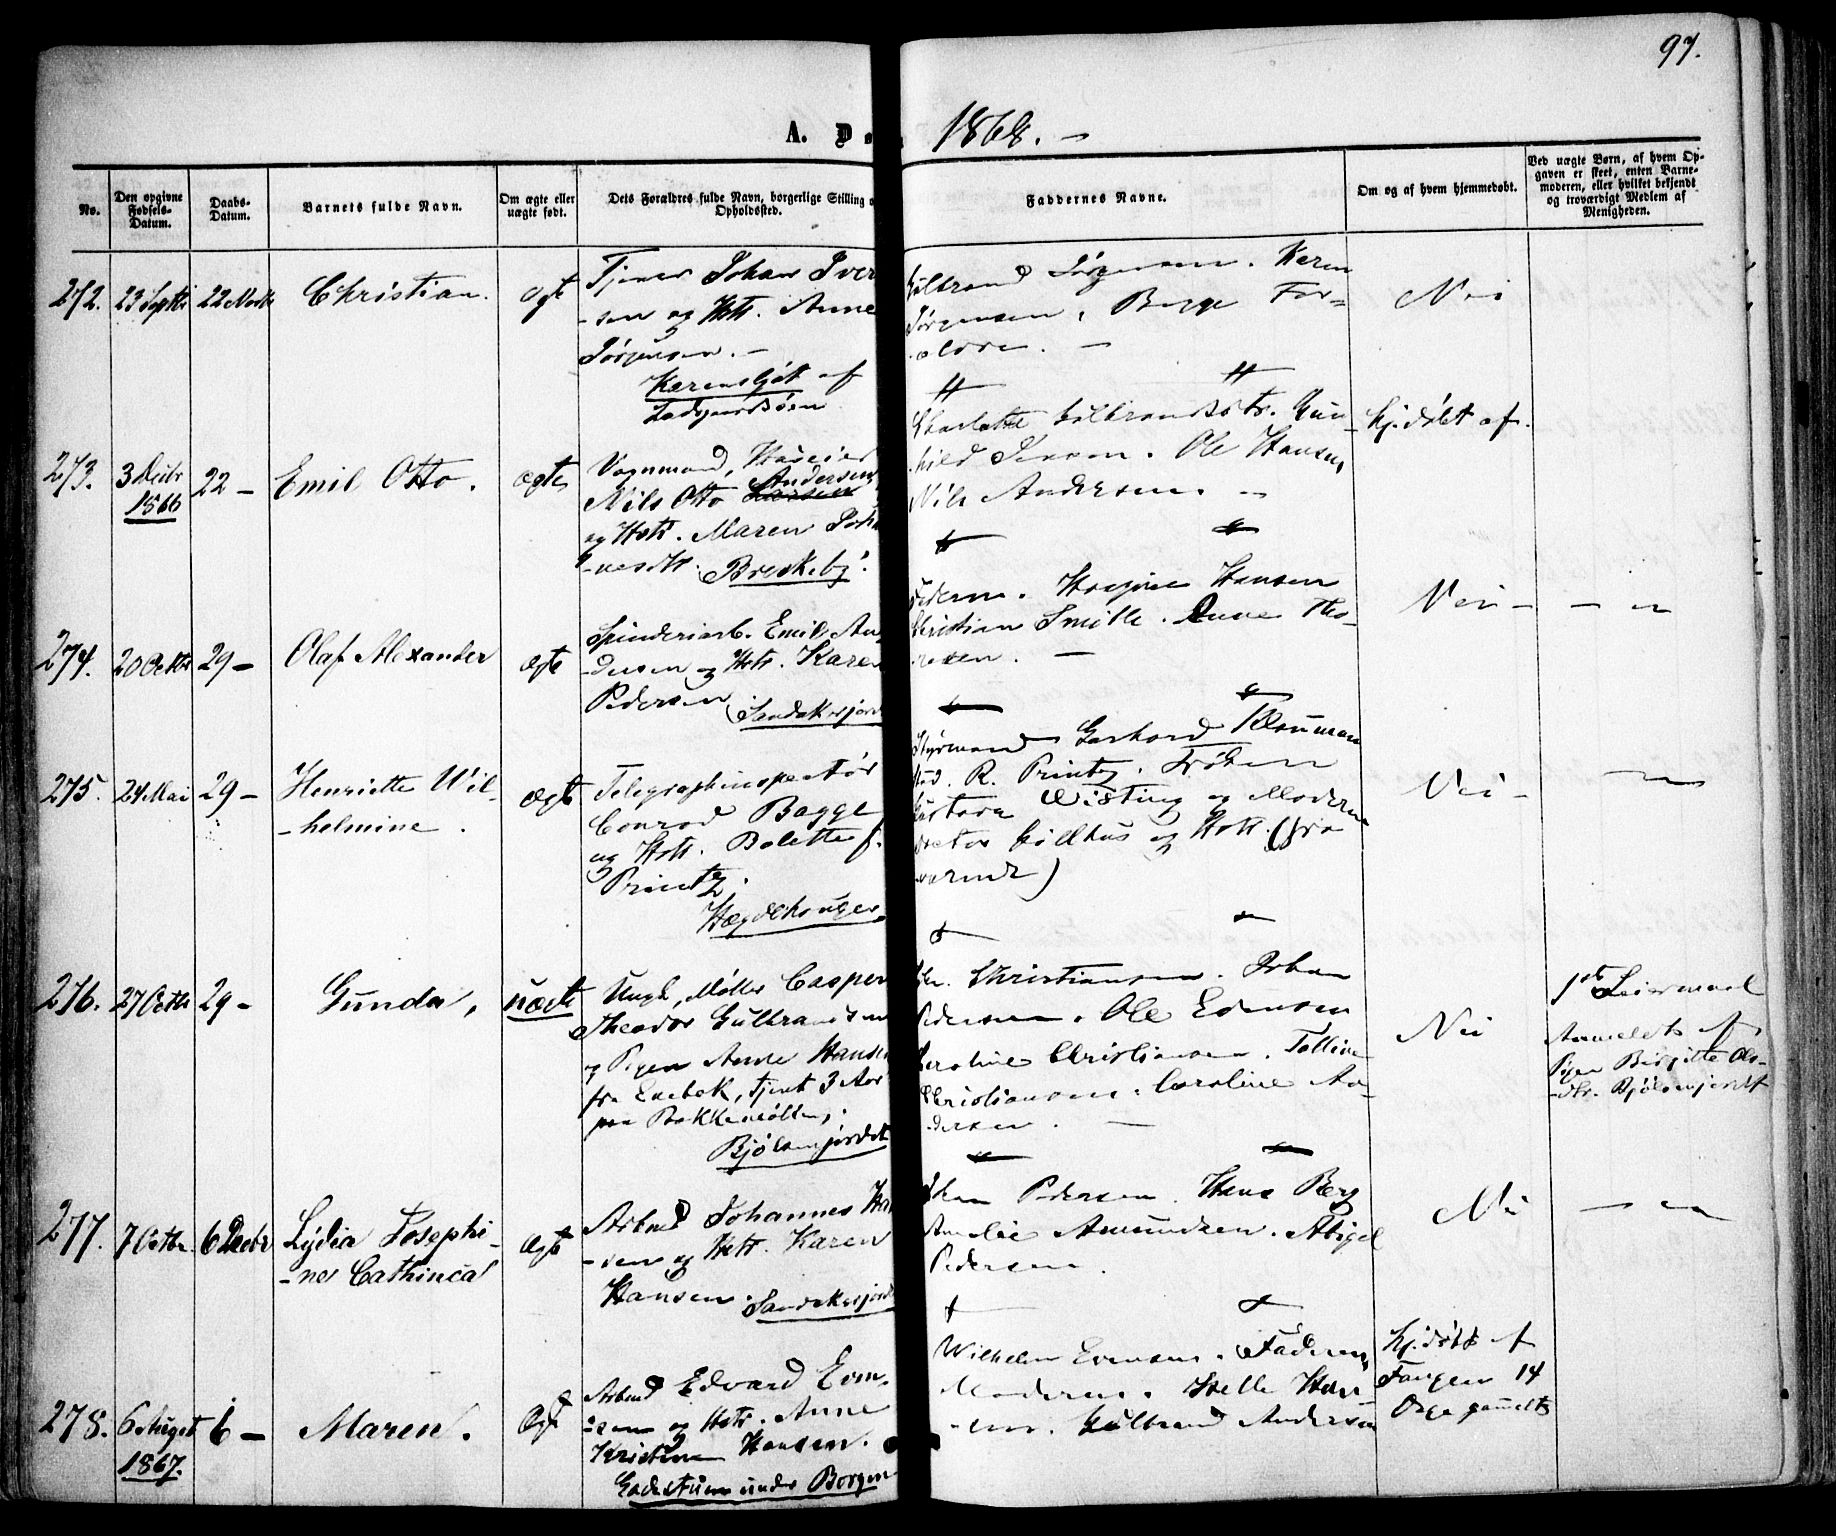 97.
A. D 1868. –
No.
Den opgivne Fødsels-Datum.
Daabs-Datum.
Barnets fulde Navn.
Om ægte eller uægte født.
Dets Forældres fulde Navn, borgerlige Stilling o
Opholdssted.
Faddernes Navne.
Om og af hvem hjemmedøbt.
Ved uægte Børn, af hvem Op-
gaven er skeet, enten Barne-
moderen, eller hvilket bekjendt
og troværdigt Medlem af
Menigheden.
272.
23 Septbr
22 Novbr
Christian.
Ægte
Tjener Johan Iver
-sen og Hstr. Anne
Jørgensen. –
af
Jørgensen. Karen
Jørgensen, Børge For-
ældre. –
Nei
273.
3 Decbr
1866
22 –
Emil Otto.
ægte
Vogmand, Huseier
Nils Otto Andersen
og Hstr. Maren Joha
Breskeby.
Charlotte Gulbrandsdtr. Gun-
hild Jensen. Ole Hansen
Nils Andersen. –
Hj.døbt af.
274.
20 Octbr
29 –
Olaf Alexander
ægte
Spinderiarb. Emil An-
dersen og Hstr. Karen
Pedersen
Sandakerjord
Faderen. Hansen
Christian Smille. Anne Tho-
resen. –
Nei –
275.
24 Mai
29 –
Henriette Wil-
-helmine.
Ægte
Telegraphinspectør
Conrad Bagge
og Hstr. Bolette f.
Printz.
Hægdehougen
Styrmand Gerhard
R. Printz. Frøken
Gustava Wisting og Moderen
og Hstr. (fra
værende)
Nei –
276.
27 Octbr
29 –
Gunda,
uægte
Ungk. Møller Casper
Theodor Gulbrandsen
og Pigen Anne Hansen
fra Enebak, tjent 3 Aar
paa Bakkemøllen,
Bjølsenjordet
Christiansen. Johan
Pedersen. Ole Evensen
Karoline Christiansen. Talline
Christiansen. Caroline An-
dersen. –
Nei
1ste Leiermaal
Anmeldt af
Pigen Birgitte Ols-
-dtr. Bjølsenjordet
277.
7 Octbr
6 Decbr
Lydia Josephi-
-ne Cathinca
Ægte
Arbmd Johannes Ha
-sen og Hstr. Karen
Hansen.
Sandakerjord
Johan Pedersen. Hans Berg
Amalie Amundsen. Abigel
Pedersen.
Nei
278.
6 August
1867.
6 –
Maren.
Ægte
Arbmd Edvard Even-
-sen og Hstr. Anne
Kristine Hansen.
under Borgen
Wilhelm Evensen. Faderen,
Moderen. Helle Han-
-sen. Gulbrand Andersen
Hj.døbt af
14
Dage gammelt